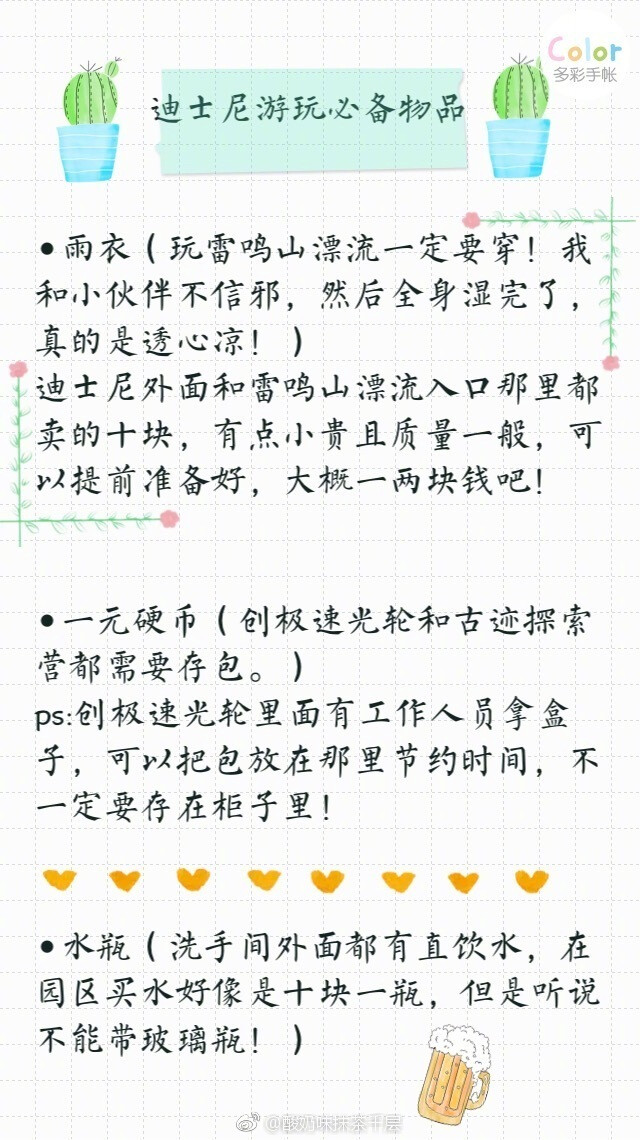 Color
多彩手帐
迪士尼游玩必备物品
•雨衣（玩雷鸣山漂流一定要穿！我
和小伙伴不信邪，然后全身湿完了，
真的是透心凉！）
迪士尼外面和雷鸣山漂流入口那里都
卖的十块，有点小贵且质量一般，可
以提前准备好，大概一两块钱吧！
•一元硬币（创极速光轮和古迹探索
营都需要存包。）
ps:创极速光轮里面有工作人员拿盒
子，可以把包放在那里节约时间，不
一定要存在柜子里！
•水瓶（洗手间外面都有直饮水，在
园区买水好像是十块一瓶，但是听说
不能带玻璃瓶！）
@酸奶味抹茶千层